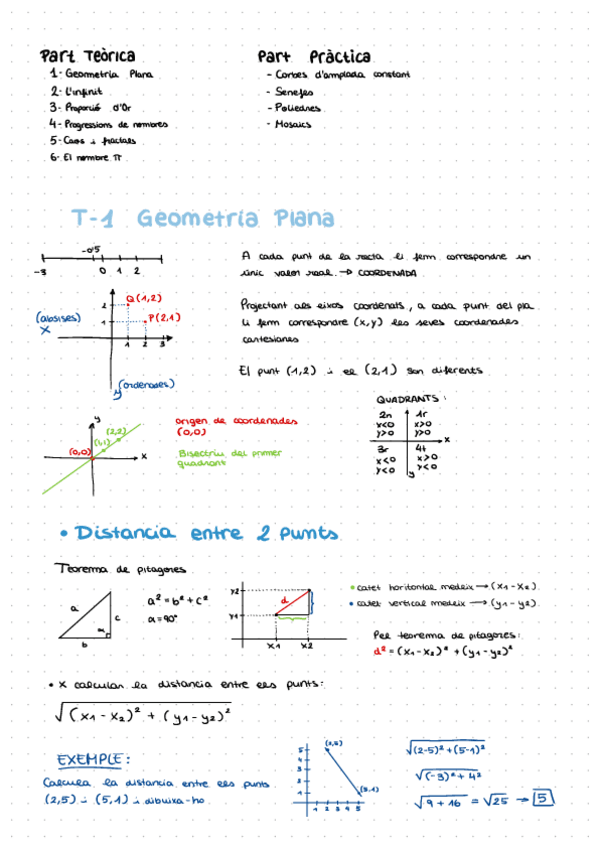 Part Teòrica
1- Geometria Plana
2- L'infinit
3- Proporció d'Or
4- Progressions de nombres
5- Caos i fractals
6- El nombre π
Part Pràctica
- Corbes d'amplada constant
- Senefes
- Poliedres
- Mosaics
T-1 Geometría Plana
-0'5
-3 0 1 2
A cada punt de la recta li fem correspondre un
únic valor real → COORDENADA
Q(1,2)
P(2,1)
2
1
1 2 3
(absises)
X
(ordenades)
y
Projectant als eixos coordenats, a cada punt del pla
li fem correspondre (x,y) les seves coordenades
cartesianes
El punt (1,2) i el (2,1) són diferents
y
(2,2)
(1,1)
(0,0)
x
origen de coordenades
(0,0)
Bisectriu del primer
quadrant
QUADRANTS:
2n 1r
x<0 x>0
y>0 y>0
x
3r 4t
x<0 x>0
y<0 y<0
y
• Distancia entre 2 punts
Teorema de pitagores
a
c
α
b
a² = b² + c²
α = 90º
y2
y1
d
x1 x2
• catet horitontal medeix → (x1 - x2)
• catet vertical medeix → (y1 - y2)
Pel teorema de pitagores:
d² = (x1 - x2)² + (y1 - y2)²
• x calcular la distancia entre els punts:
√(x1 - x2)² + (y1 - y2)²
EXEMPLE:
Calcula la distancia entre els punts
(2,5) i (5,1) i dibuixa-ho
(2,5)
(5,1)
5
4
3
2
1
1 2 3 4 5
√(2-5)² + (5-1)²
√(-3)² + 4²
√9 + 16 = √25 → 5